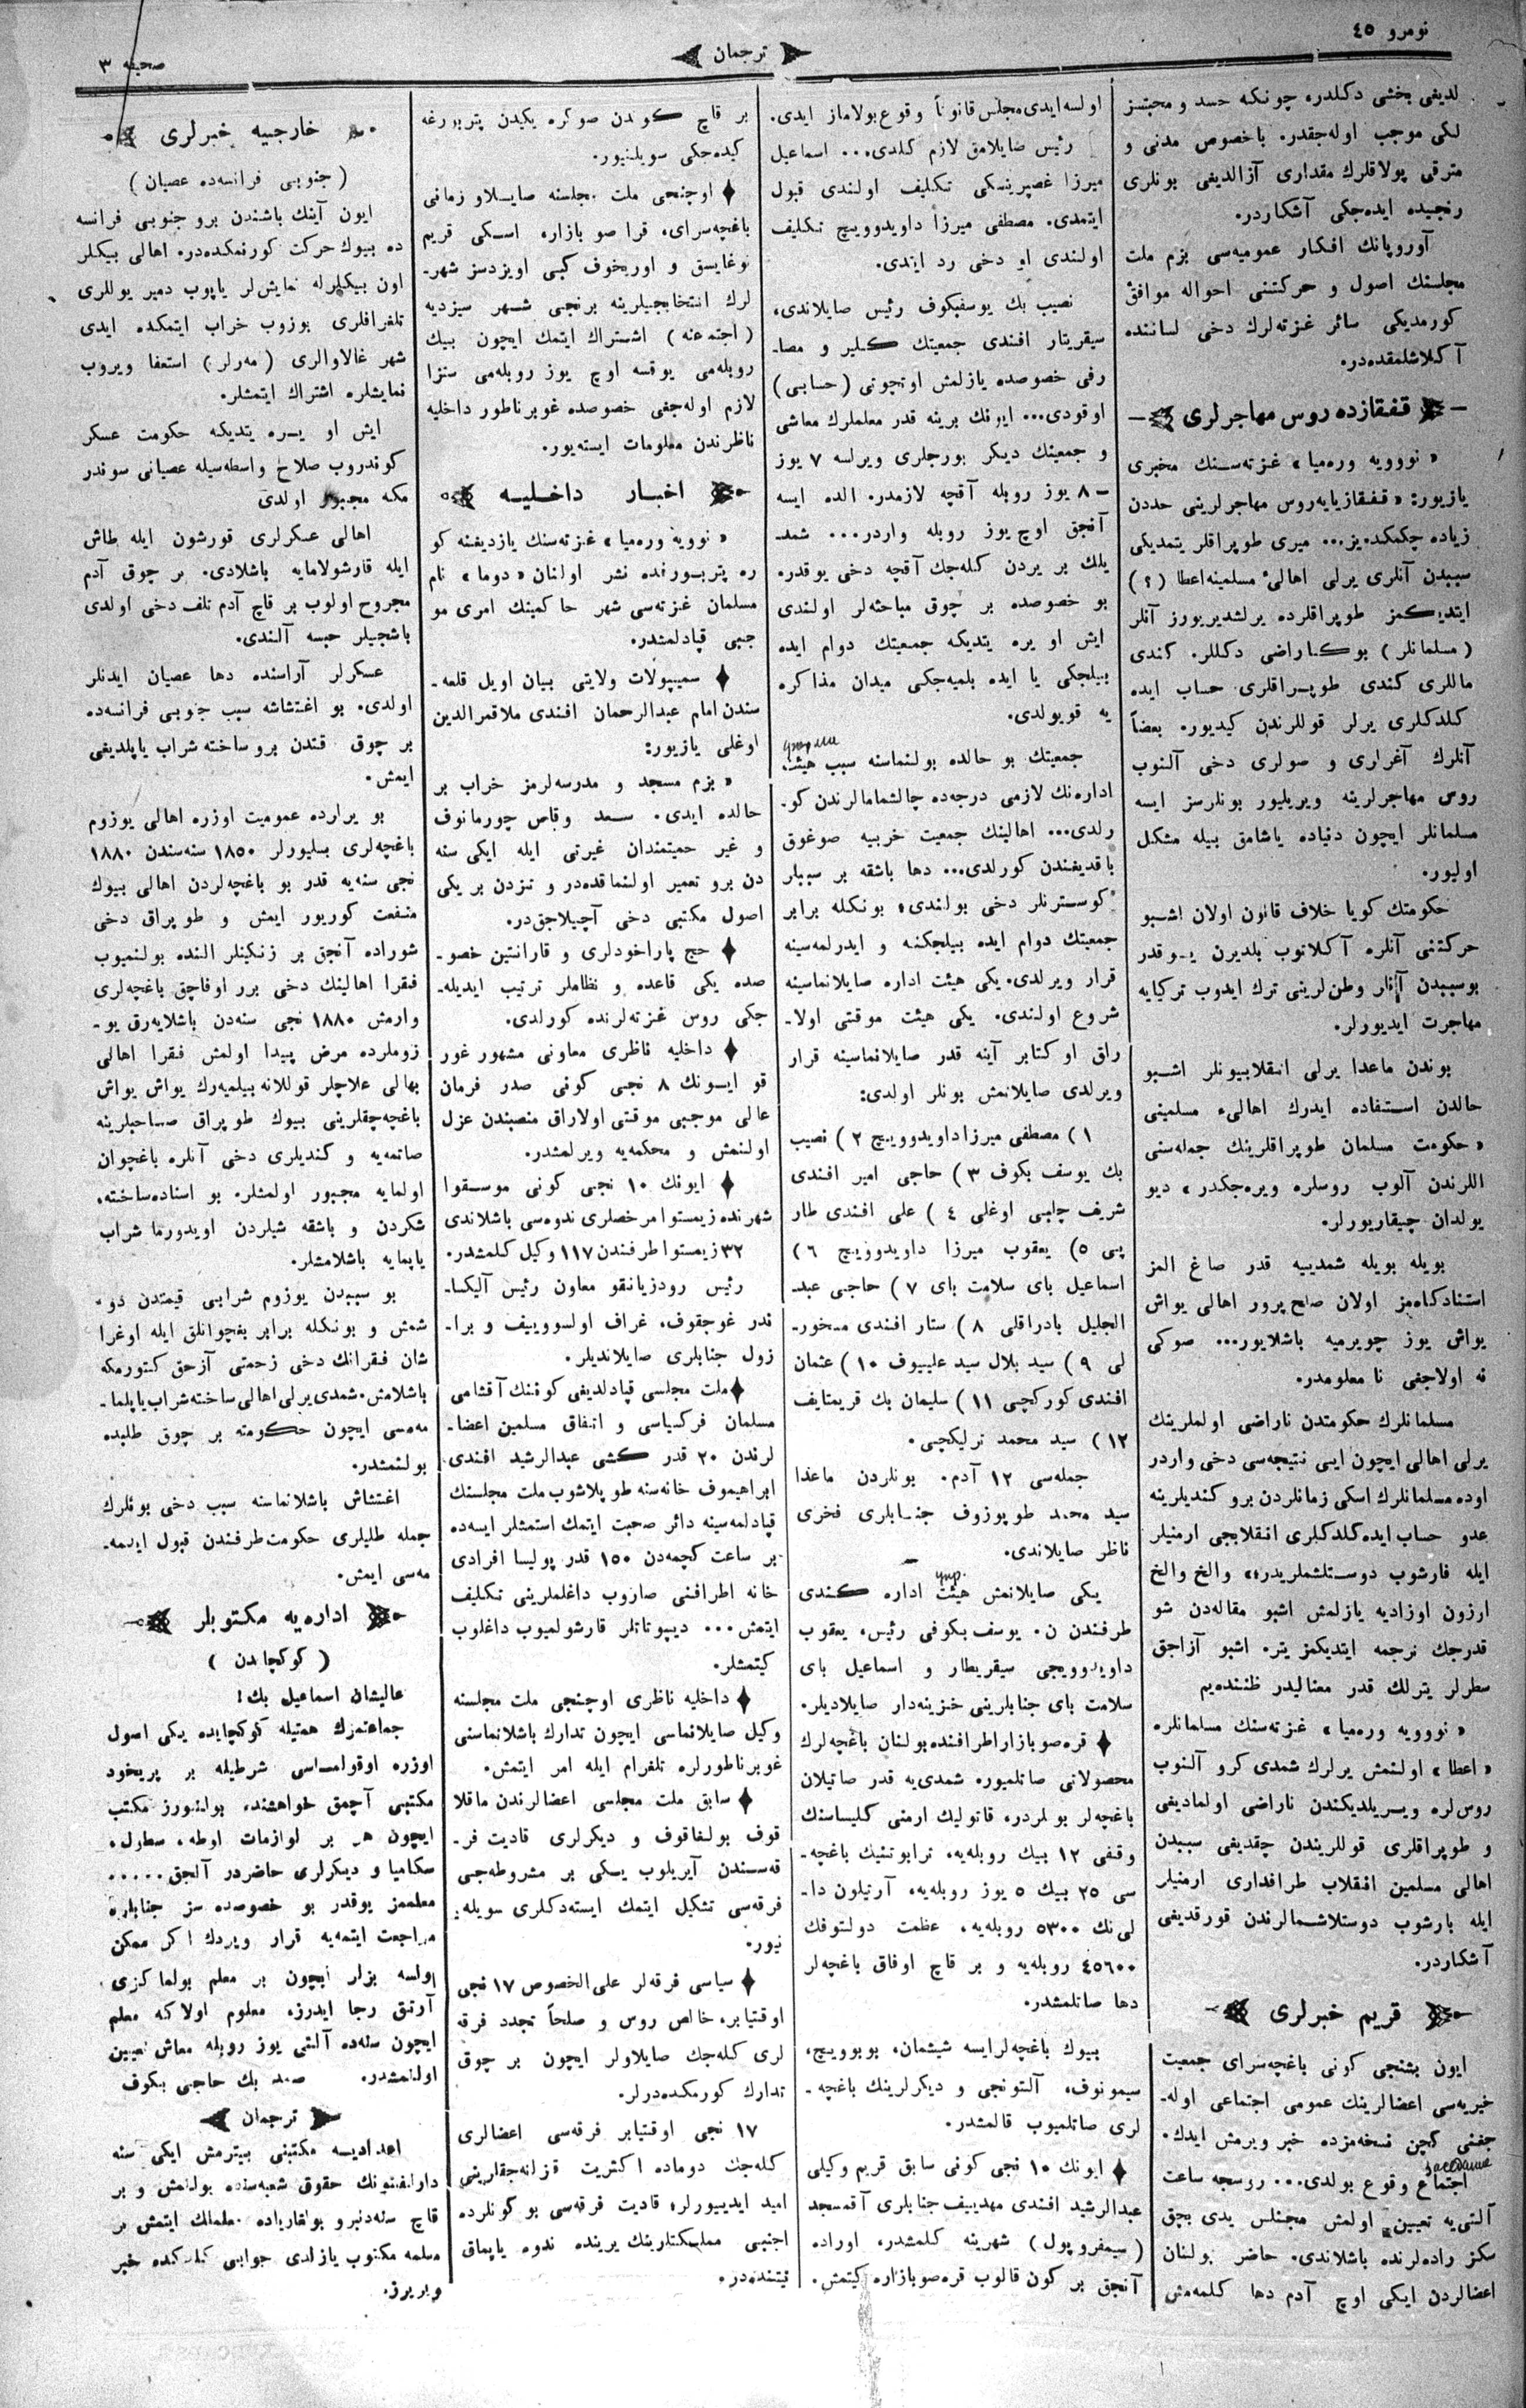 نومرو ٤٥
ترجمان
صحیفه ٣
لدیغی یخشی دکلدر، چونکه حسد و محبتسز
لکی موجب اوله‌جقدر. باخصوص مدنی و
مترقی پولاقلرك مقداری آزالدیغی بونلری
رنجیده ایده‌جکی آشکاردر.
آوروپانك افکار عمومیه‌سی بزم ملت
مجلسنك اصول و حرکتنی احواله موافق
کورمدیکی سائر غزته‌لرك دخی لساننده
آکلاشلمقده‌در.
قفقازده روس مهاجرلری
« نوویه وره‌میا » غزته‌سنك مخبری
یازیور: « قفقازیایه روس مهاجرلرینی حددن
زیاده چکمکده‌یز... میری طوپراقلر یتمدیکی
سببدن آنلری یرلی اهالیٔ مسلمینه اعطا (؟)
ایتدیکمز طوپراقلرده یرلشدیریورز آنلر
( مسلمانلر ) بوکا راضی دکللر. کندی
ماللری کندی طوپراقلری حساب ایده
کلدکلری یرلر قوللرندن کیدیور. بعضاً
آنلرك آغزلری و صولری دخی آلنوب
روس مهاجرلرینه ویریلیور بونلرسز ایسه
مسلمانلر ایچون دنیاده یاشامق بیله مشکل
اولیور.
حکومتك کویا خلاف قانون اولان اشبو
حرکتنی آنلره آکلاتوب بلدیرن یوقدر
بوسببدن آنلر وطن‌لرینی ترك ایدوب ترکیایه
مهاجرت ایدیورلر.
بوندن ماعدا یرلی انقلابیونلر اشبو
حالدن استفاده ایدرك اهالیء مسلمینی
« حکومت مسلمان طوپراقلرینك جمله‌سنی
اللرندن آلوب روسلره ویره‌جکدر » دیو
یولدان چیقاریورلر.
بویله بویله شمدییه قدر صاغ المز
استنادکاهمز اولان صلح پرور اهالی یواش
یواش یوز چویرمیه باشلایور... صوکی
نه اولاجغی نا معلومدر.
مسلمانلرك حکومتدن ناراضی اولملرینك
یرلی اهالی ایچون ایی نتیجه‌سی دخی واردر
اوده مسلمانلرك اسکی زمانلردن برو کندیلرینه
عدو حساب ایده‌کلدکلری انقلابجی ارمنیلر
ایله قارشوب دوستلشملریدر» والخ والخ
ارزون اوزادیه یازلمش اشبو مقاله‌دن شو
قدرجك ترجمه ایتدیکمز یتر. اشبو آزاجق
سطرلر یترلك قدر معنالیدر ظننده‌یم
« نوویه وره‌میا » غزته‌سنك مسلمانلره
« اعطا » اولنمش یرلرك شمدی کرو آلنوب
روس‌لره ویریلدیکندن ناراضی اولمادیغی
و طوپراقلری قوللریندن چقدیغی سببدن
اهالی مسلمین انقلاب طرافداری ارمنیلر
ایله بارشوب دوستلاشمالرندن قورقدیغی
آشکاردر.
قریم خبرلری
ایون بشنجی کونی باغچه‌سرای جمعیت
خیریه‌سی اعضالرینك عمومی اجتماعی اوله-
جغنی کچن نسخه‌مزده خبر ویرمش ایدك.
اجتماع وقوع بولدی... روسجه ساعت
آلتی‌یه تعیین اولمش مجلس یدی بچق
سکز راده‌لرنده باشلاندی. حاضر بولنان
اعضالردن ایکی اوچ آدم دها کلمه‌مش
اولسه ایدی مجلس قانوناً وقوع بولاماز ایدی.
رئیس صایلامق لازم کلدی... اسماعیل
میرزا غصپرینسکی تکلیف اولندی قبول
ایتمدی. مصطفی میرزا داویدوویچ تکلیف
اولندی او دخی رد ایتدی.
نصیب بك یوسفبکوف رئیس صایلاندی،
سیقریتار افندی جمعیتك کلیر و مصا-
رفی خصوصده یازلمش اوتچوتی (حسابی)
اوقودی... ایونك برینه قدر معلملرك معاشی
و جمعیتك دیکر بورجلری ویرلسه ٧ یوز
-٨ یوز روبله آقچه لازمدر. الده ایسه
آنجق اوچ یوز روبله واردر... شمد-
یلك بر یردن کله‌جك آقچه دخی یوقدر.
بو خصوصده بر چوق مباحثه‌لر اولندی
ایش او یره یتدیکه جمعیتك دوام ایده
بیلجکی یا ایده بلمیه‌جکی میدان مذاکره
یه قویولدی.
جمعیتك بو حالده بولنماسنه سبب هیئت
اداره‌نك لازمی درجه‌ده چالشمامالرندن کو-
رلدی... اهالینك جمعیت خربیه صوغوق
باقدیغندن کورلدی... دها باشقه بر سببلر
کوسترنلر دخی بولندی؛ بونکله برابر
جمعیتك دوام ایده بیلجکنه و ایدرلمه‌سینه
قرار ویرلدی. یکی هیئت اداره صایلانماسینه
شروع اولندی. یکی هیئت موقتی اولا-
راق اوکتابر آینه قدر صایلانماسینه قرار
ویرلدی صایلانمش بونلر اولدی:
١) مصطفی میرزا داویدوویچ ٢) نصیب
بك یوسف بکوف ٣) حاجی امیر افندی
شریف چلبی اوغلی ٤ ) علی افندی طار
پی ٥) یعقوب میرزا داویدوویچ ٦)
اسماعیل بای سلامت بای ٧ ) حاجی عبد-
الجلیل بادراقلی ٨ ) ستار افندی مسخور-
لی ٩ ) سید بلال سید علییوف ١٠ ) عثمان
افندی کورکچی ١١ ) سلیمان بك قریمتایف
١٢ ) سید محمد ترلیکجی.
جمله‌سی ١٢ آدم. بونلردن ماعدا
سید محمد طوپوزوف جنابلری فخری
ناظر صایلاندی.
упр.
یکی صایلانمش هیئت اداره کندی
طرفندن ن. یوسف بکوفی رئیس، یعقوب
داویدوویجی سیقریطار و اسماعیل بای
سلامت بای جنابلرینی خزینه‌دار صایلادیلر.
قره‌صوبازار اطرافنده بولنان باغچه‌لرك
محصولاتی صاتلمیور. شمدی‌یه قدر صاتیلان
باغچه‌لر بولمردر، قاتولیك ارمنی کلیساسنك
وقفی ١٢ بیك روبله‌یه، ترابوتنیك باغچه-
سی ٢٥ بیك ٥ یوز روبله‌یه، آرتیلون دا-
لی‌نك ٥٣٠٠ روبله‌یه، عظمت دولتوفك
٤٥٦٠٠ روبله‌یه و بر قاچ اوفاق باغچه‌لر
دها صاتلمشدر.
بیوك باغچه‌لرایسه شیشمان، بوبوویچ،
سیمونوف، آلتونجی و دیکرلرینك باغچه-
لری صاتلمیوب قالمشدر.
ایونك ١٠ نجی کونی سابق قریم وکیلی
عبدالرشید افندی مهدییف جنابلری آقمسجد
( سیمفروپول ) شهرینه کلمشدر، اوراده
آنجق بر کون قالوب قره‌صوبازاره کیتمش.
بر قاچ کوندن صوکره یکیدن پتربورغه
کیده‌جکی سویلنیور.
اوچنجی ملت مجلسنه صایلاو زمانی
باغچه‌سرای، قراصو بازار، اسکی قریم
نوغایسق و اوریخوف کبی اویزدسز شهر-
لرك انتخابجیلرینه برنجی شهر سیزدیه
(اجتمعنه) اشتراك ایتمك ایچون بیك
روبله‌می یوقسه اوچ یوز روبله‌می سنزا
لازم اوله‌جغی خصوصده غوبرناطور داخلیه
ناظرندن معلومات ایسته‌یور.
اخبار داخلیه
« نوویه وره‌میا » غزته‌سنك یازدیغنه کو
ره پتربورغده نشر اولنان « دوما » نام
مسلمان غزته‌سی شهر حاکمینك امری مو
جبی قپادلمشدر.
سمیپولات ولایتی بیان اویل قلعه-
سندن امام عبدالرحمان افندی ملا قمرالدین
اوغلی یازیور:
« بزم مسجد و مدرسه‌لرمز خراب بر
حالده ایدی. سعد وقاص چورمانوف
و غیر حمیتمندان غیرتی ایله ایکی سنه
دن برو تعمیر اولنماقده‌در و تزدن بر یکی
اصول مکتبی دخی آچیلاجق‌در.
حج پاراخودلری و قارانتین خصو-
صده یکی قاعده و نظاملر ترتیب ایدیله-
جکی روس غزته‌لرنده کورلدی.
داخلیه ناظری معاونی مشهور غور
قو ایونك ٨ نجی کونی صدر فرمان
عالی موجبی موقتی اولاراق منصبندن عزل
اولنمش و محکمه‌یه ویرلمشدر.
ایونك ١٠ نجی کونی موسقوا
شهرنده زیمستوا مرخصلری ندوه‌سی باشلاندی
٣٢ زیمستوا طرفندن ١١٧ وکیل کلمشدر.
رئیس رودزیانقو معاون رئیس آلیکسا-
ندر غوجقوف، غراف اولسوویف و برا-
زول جنابلری صایلاندیلر.
ملت مجلسی قپادلدیغی کوننك آقشامی
مسلمان فرکسیاسی و اتفاق مسلمین اعضا-
لرندن ٢٠ قدر کشی عبدالرشید افندی
ابراهیموف خانه‌سنه طوپلاشوب ملت مجلسنك
قپادلمه‌سینه دائر صحبت ایتمك استمشلر ایسه‌ده
بر ساعت کچمه‌دن ١٥٠ قدر پولیسا افرادی
خانه اطرافنی صاروب داغلملرینی تکلیف
ایتمش... دیپوتاتلر قارشولمیوب داغلوب
کیتمشلر.
داخلیه ناظری اوچنجی ملت مجلسنه
وکیل صایلانماسی ایچون تدارك باشلانماسنی
غوبرناطورلره تلغرام ایله امر ایتمش.
سابق ملت مجلسی اعضالرندن ماقلا
قوف بولغاقوف و دیکرلری قادیت فر-
قه‌سندن آیریلوب یکی بر مشروطه‌جی
فرقه‌سی تشکیل ایتمك ایسته‌دکلری سویله-
نیور.
سیاسی فرقه‌لر علی الخصوص ١٧ نجی
اوقتیابر، خالص روس و صلحاً تجدد فرقه
لری کله‌جك صایلاولر ایچون بر چوق
تدارك کورمکده‌درلر.
١٧ نجی اوقتیابر فرقه‌سی اعضالری
کله‌جك دوماده اکثریت قزانه‌جقلرینی
امید ایدییورلر؛ قادیت فرقه‌سی بو کونلرده
اجنبی مملکتلرینك یرینده ندوه یاپماق
نیتنده‌در.
خارجیه خبرلری
( جنوبی فرانسه‌ده عصیان )
ایون آینك باشندن برو جنوبی فرانسه
ده بیوك حرکت کورنمکده‌در. اهالی بیکلر
اون بیکلرله نمایش‌لر یاپوب دمیر یوللری
تلغرافلری بوزوب خراب ایتمکده ایدی
شهر غالاوالری ( مه‌رلر ) استعفا ویروب
نمایشلره اشتراك ایتمشلر.
ایش او یره یتدیکه حکومت عسکر
کوندروب صلاح واسطه‌سیله عصیانی سوندر
مکه مجبور اولدی
اهالی عسکرلری قورشون ایله طاش
ایله قارشولامایه باشلادی. بر چوق آدم
مجروح اولوب بر قاچ آدم تلف دخی اولدی
باشجیلر حبسه آلندی.
عسکرلر آراسنده دها عصیان ایدنلر
اولدی. بو اغتشاشه سبب جنوبی فرانسه‌ده
بر چوق قتدن برو ساخته شراب یاپلدیغی
ایمش.
بو یرلرده عمومیت اوزره اهالی یوزوم
باغچه‌لری بسلیورلر ١٨٥٠ سنه‌سندن ١٨٨٠
نجی سنه‌یه قدر بو باغچه‌لردن اهالی بیوك
منفعت کوریور ایمش و طوپراق دخی
شوراده آنجق بر زنکینلر النده بولنمیوب
فقرا اهالینك دخی برر اوفاچق باغچه‌لری
وارمش ١٨٨٠ نجی سنه‌دن باشلایه‌رق یو-
زوملرده مرض پیدا اولمش فقرا اهالی
بهالی علاجلر قوللانه بیلمیه‌رك یواش یواش
باغچه‌چقلرینی بیوك طوپراق صاحبلرینه
صاتمه‌یه و کندیلری دخی آنلره باغچوان
اولمایه مجبور اولمشلر. بو اسناده ساخته،
شکردن و باشقه شیلردن اویدورما شراب
یاپمایه باشلامشلر.
بو سببدن یوزوم شرابی قیمتدن دو-
شمش و بونکله برابر بغچوانلق ایله اوغرا
شان فقرانك دخی زحمتی آزحق کتورمکه
باشلامش. شمدی یرلی اهالی ساخته شراب یاپلما-
مه‌سی ایچون حکومته بر چوق طلبده
بولنمشدر.
اغتشاش باشلانماسنه سبب دخی بونلرك
جمله طلبلری حکومت طرفندن قبول ایدیمه-
مه‌سی ایمش.
اداره‌یه مکتوبلر
( کوکچایدن )
عالیشان اسماعیل بك!
جماعتمزك همتیله کوکچایده یکی اصول
اوزره اوقولماسی شرطیله بر پریخود
مکتبی آچمق خواهشنده بولنیورز مکتب
ایچون هر بر لوازمات اوطه، سطول،
سکامیا و دیکرلری حاضردر آنجق.....
معلممز یوقدر بو خصوصده سز جنابلره
مراجعت ایتمه‌یه قرار ویردك اکر ممکن
اولسه بزلر ایچون بر معلم بولماکزی
آرتق رجا ایدرز، معلوم اولاکه معلم
ایچون سنه‌ده آلتی یوز روبله معاش تعیین
اولنمشدر. صمد بك حاجی بکوف
ترجمان
اعدادیه مکتبنی بیترمش ایکی سنه
دارالفنونك حقوق شعبه‌سنده بولنمش و بر
قاچ سنه‌دنبرو بولغاریاده معلملك ایتمش بر
معلمه مکتوب یازلدی جوابی کلدکده خبر
ویریرز.